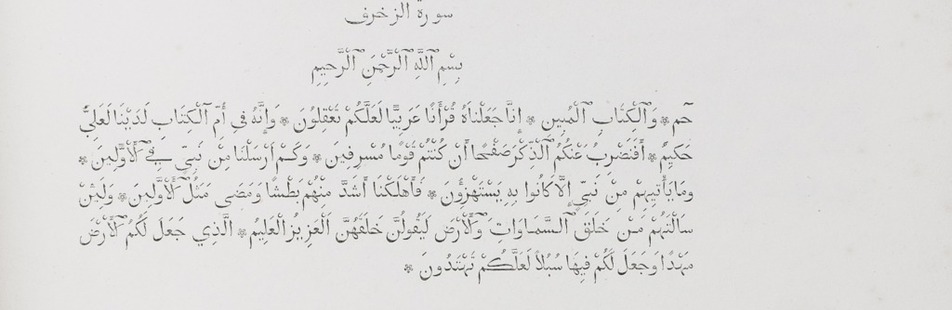 سورة الزخرف
بِسْمِ ٱللَّهِ ٱلرَّحْمَنِ ٱلرَّحِيمِ
حم * وَٱلْكِتَابِ ٱلْمُبِينِ * إِنَّا جَعَلْنَاهُ قُرْأَنًا عَرَبِيًّا لَعَلَّكُمْ تَعْقِلُونَ * وَإِنَّهُ فِي أُمِّ ٱلْكِتَابِ لَدَيْنَا لَعَلِيٌّ
حَكِيمٌ * أَفَنَضْرِبُ عَنْكُمُ ٱلذِّكْرَ صَفْحًا أَنْ كُنْتُمْ قَوْمًا مُسْرِفِينَ * وَكَمْ أَرْسَلْنَا مِنْ نَبِيٍّ فِي ٱلْأَوَّلِينَ *
وَمَا يَأْتِيهِمْ مِنْ نَبِيٍّ إِلَّا كَانُوا بِهِ يَسْتَهْزِؤُنَ * فَأَهْلَكْنَا أَشَدَّ مِنْهُمْ بَطْشًا وَمَضَى مَثَلُ ٱلْأَوَّلِينَ * وَلَئِنْ
سَأَلْتَهُمْ مَنْ خَلَقَ ٱلسَّمَاوَاتِ وَٱلْأَرْضَ لَيَقُولُنَّ خَلَقَهُنَّ ٱلْعَزِيزُ ٱلْعَلِيمُ * ٱلَّذِي جَعَلَ لَكُمُ ٱلْأَرْضَ
مَهْدًا وَجَعَلَ لَكُمْ فِيهَا سُبُلًا لَعَلَّكُمْ تَهْتَدُونَ *